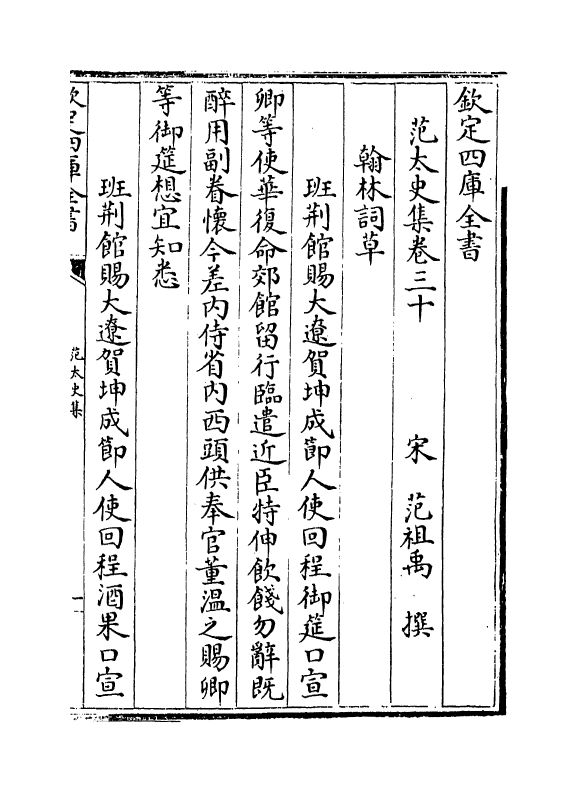 欽定四庫全書
范太史集卷三十 宋 范祖禹 撰
翰林詞草
班荆館賜大遼賀坤成節人使回程御筵口宣
卿等使華復命郊館留行臨遣近臣特伸飲餞勿辭既
醉用副眷懷今差内侍省内西頭供奉官董温之賜卿
等御筵想宜知悉
班荆館賜大遼賀坤成節人使回程酒果口宣
欽定四庫全書
范太史集
一